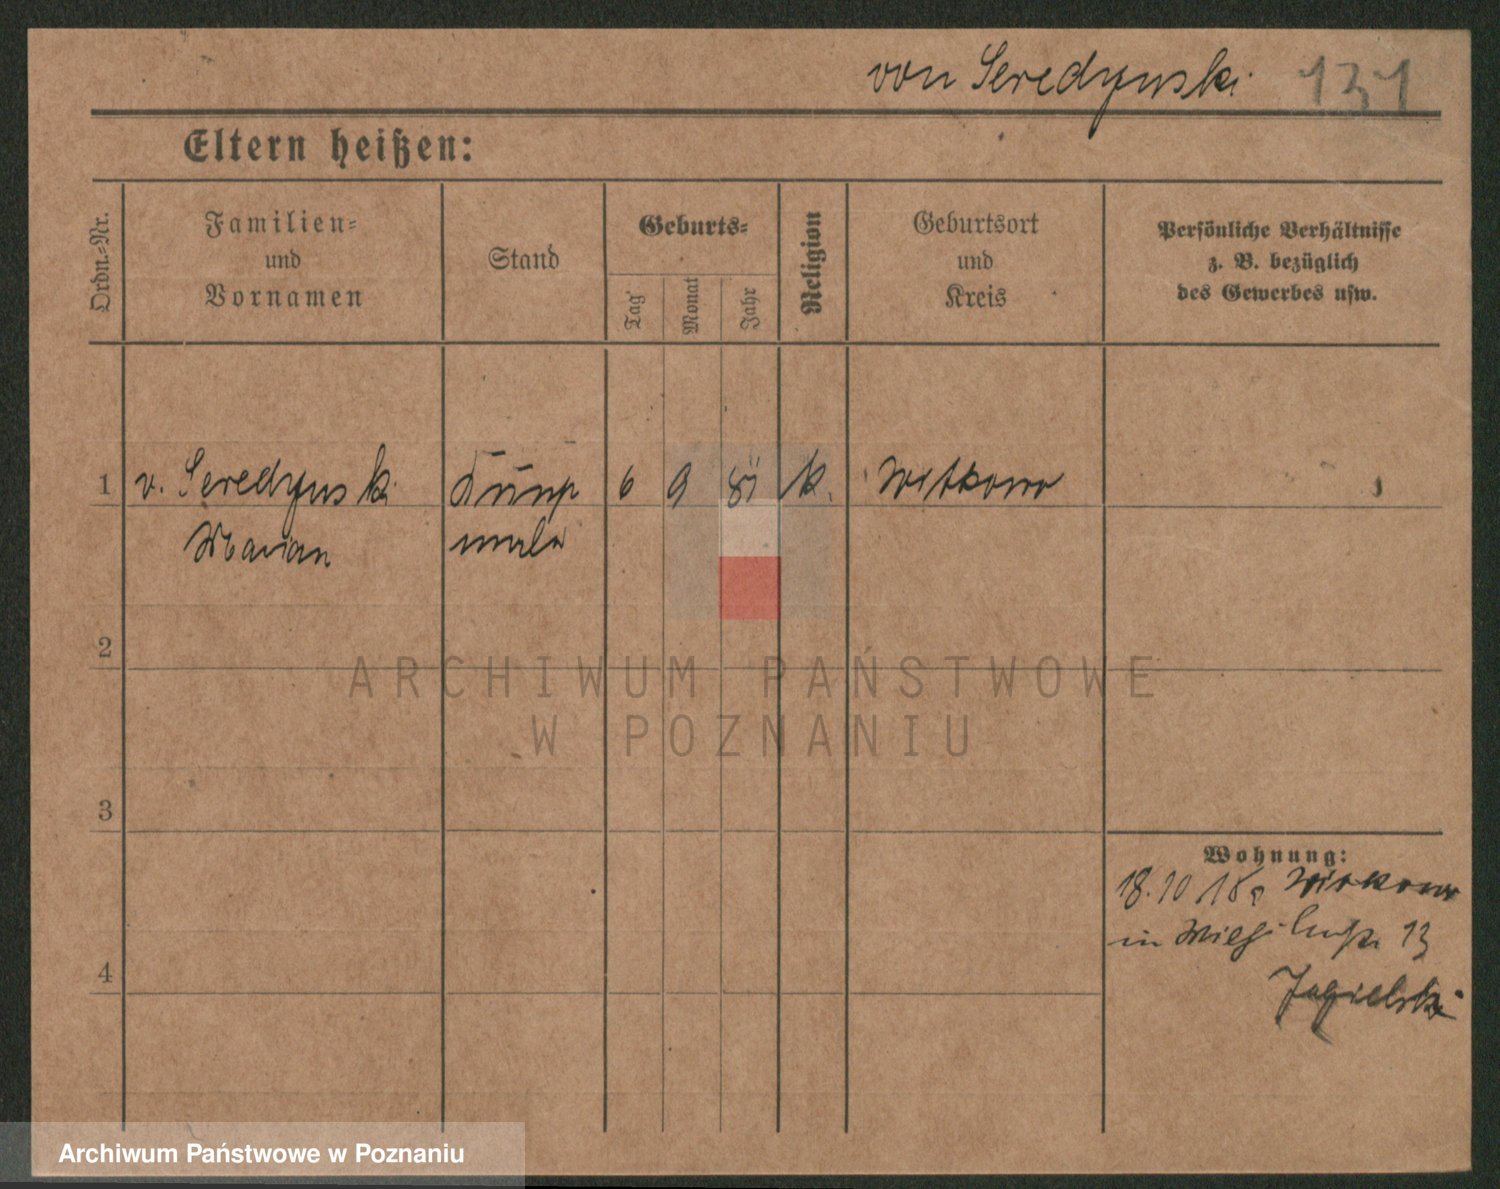 von Seredynski 131
Eltern heißen:
Ordn.-Nr.
Familien-
und
Vornamen
Stand
Geburts-
Tag
Monat
Jahr
Religion
Geburtsort
und
Kreis
Persönliche Verhältnisse
z. B. bezüglich
des Gewerbes usw.
1 v. Seredynski Kunst 6 9 81 k. Witkowo
Marian maler
2
ARCHIWUM PAŃSTWOWE
W POZNANIU
3
Wohnung:
18.10 18 Witkowo
in 13
4
Jagielski
Archiwum Państwowe w Poznaniu